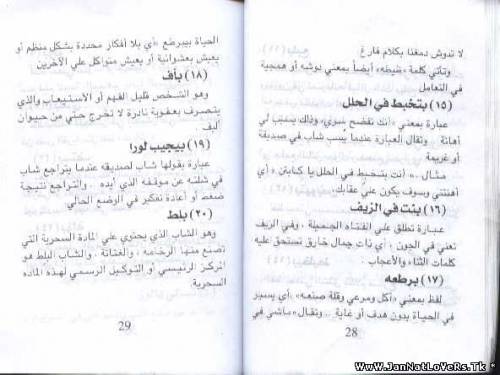 لا تدوش دمغنا بكلام فارغ
وتأتي كلمة «خبطه» أيضاً بمعني دوشه أو همجية
في التعامل
(١٥) بتخبط في الحلل
عبارة بمعني «انك تفضح سري» وذلك يسبب لي
أهانة .. وتقال العبارة عندما يسب شاب في صديقة
أو غريمة
مثال .. «أنت بتخبط في الحلل يا كابتن» أي
أهنتني وسوف يكون علي عقابك.
(١٦) بنت في الزيف
عبارة تطلق علي الفتاه الجميلة .. وفي الزيف
تعني في الجون .. أي ذات جمال خارق تستحق عليه
كلمات الثناء والأعجاب
(١٧) برطعه
لفظ بمعني «أكل ومرعي وقلة صنعه» أي يسير
في الحياة بدون هدف أو غاية .. وتقال «ماشي في
28
الحياة بيبرطع» أي بلا أفكار محددة بشكل منظم أو
يعيش بعشوائية أو يعيش متواكل علي الآخرين
(١٨) بأف
وهو الشخص قليل الفهم أو الأستيعاب والذي
يتصرف بعفوية نادرة لا تخرج حتي من حيوان
أليف .
(١٩) بيجيب لورا
عبارة يقولها شاب لصديقه عندما يتراجع شاب
في شلته عن موقفه الذي أيده .. والتراجع نتيجة
ضغط أو أعادة تفكير في الوضع الحالي
(٢٠) بلط
وهو الشاب الذي يحتوي علي المادة السحرية التي
تصنع منها الرخامه .. والغتاتة .. والشاب البلط هو
المركز الرئيسي أو التوكيل الرسمي لهذه الماده
السحرية
29
WwW.JanNatLoVeRs.Tk